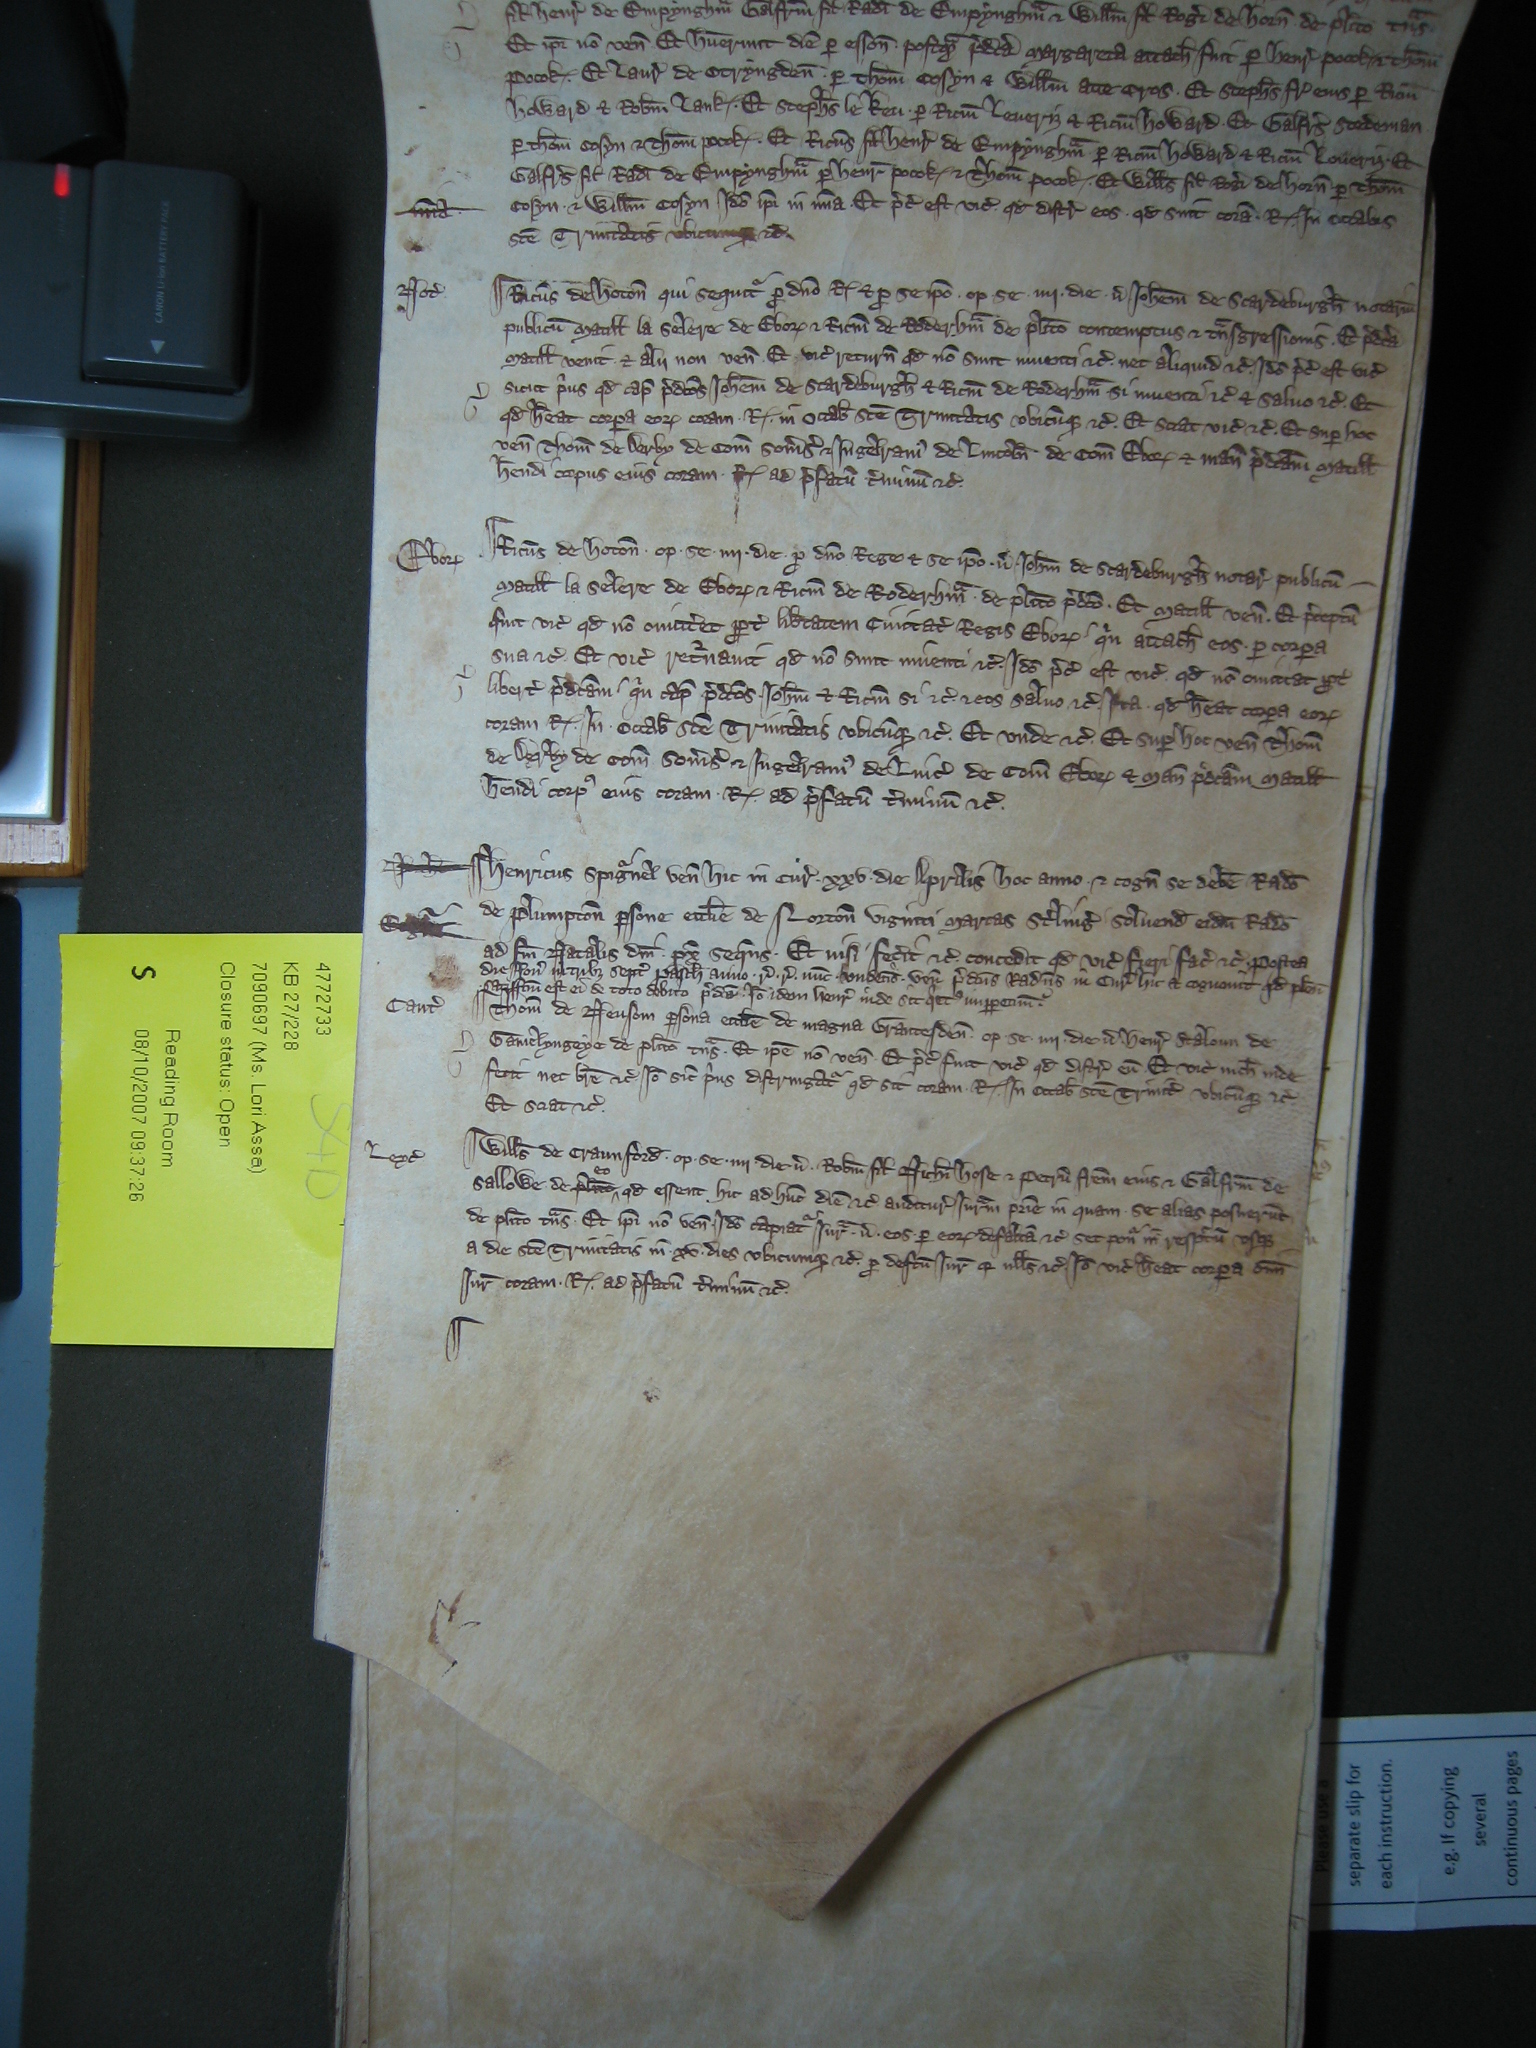 fil Henr de Empyngham Galfrm fil Radi de Empyngham & Willm fil Rogi de Horn de plito tns
Et ipi no ven Et huerunt die per esson postq pdca Margareta attach fuit per Henr Pocok & Thom
Pocok Et Laur de per Thom Cosyn & Willm atte Cros Et Stephs fr eius per Ricm
Howard & Robm Lank Et Stephs le Keu per Ricm Leueriz & Ricm Howard Et Galfrs Stedeman
per Thom Cosyn & Thom Pocok Et Ricus fil Henr de Empyngham per Ricm Howard & Ricm Loueriz Et
Galfrs fil Radi de Empyngham per Henr Pocok & Thom Pocok Et Wills fil Rogi de Horn per Thom
mia
Cosyn & Willm Cosyn Ido ipi in mia Et pc est vic qd distr eos qd sint coram R In Octabis
sce Trinitatis vbicumq &c
Not
Ricus de Hoton qui sequit p dno R & p se ipo op se iiii die v Johem de Scardeburgh notarm
publicu Matill la Selere de Ebor & Ricm de Roderhm de plito contemptus & tnsgressionis Et pdca
Matill venit & alii non ven Et vic return qd no sunt inuenti &c nec aliquid &c Ido pc est vic
sicut prius qd cap pdcos Johem de Scardeburgh & Ricm de Roderhm si inuenti &c & saluo &c Et
qd heat corpa eor coram R in Octab sce Trinitatis vbicumq &c Et sciat vic &c Et sup hoc
ven Thom de Derby de Com Somers & Ingelram de Lincoln de Com Ebor & man pdcam Matill
hendi corpus eius coram R ad pfatu tminu &c
Ebor
Ricus de Hoton op se iiii die p dno Rege & se ipo v Johm de Scardeburgh notar publicu
Matill la Selere de Ebor & Ricm de Roderhm de plito pdco Et Matill ven Et pceptu
fuit vic qd no omitteret ppt libtatem Ciuitat Regis Ebor quin attach eos per corpa
sua &c Et vic retnauit qd no sunt inuenti &c Ido pc est vic qd no omittat ppt
libert pdcam quin cap pdcos Johm & Ricm si &c & eos saluo &c Ita qd heat corpa eor
coram R In Octab sce Trinitatis vbicumq &c Et vnde &c Et sup hoc ven Thom
de Derby de Com Somers & Ingelram de Linc de Com Ebor & Man pdcam Matill
hendi corp eius coram R ad pfatu tminu &c
Henricus Spigurnel ven hic in Cur xxv die Aprilis hoc anno & cogn se debe Rado
de Plumpton psone ecclie de Norton viginti marcas stlingr soluend eidm Rado
ad fm Natalis dni px sequns Et nisi fecit &c concedit qd vic fieri fac &c Postea
die Jou in tribz sept Pasch anno r r nunc vndeno ven pdcus Radus in Cur hic & cognouit qd plen
satisfcm est ei de toto debito pdco Io idem Henr inde sit qet imppetum
Cant
Thom de Neusom psona ecclie de magna Grantesden op se iiii die v Henr Scaloun de
Gamelyngeye de plito tns Et ipe no ven Et pc fuit vic qd distr eu Et vic nich inde
fecit nec bre &c Io sic prius distringat qd sit coram R In Octab sce Trinit vbicumq &c
Et sciat &c
Leyc
Wills de Craunford op se iiii die v Robm fil Hose & Petru frem eius & Galfrm de
Sallowe de plito eo qd essent hic ad hunc die &c auditur Juram prie in quam se alias posuerunt
de plito tns Et ipi no ven Ido capiat Jur v eos per eor defaltam &c set ponit in respctu vsq
a die sce Trinitatis in xv dies vbicumq &c p defcu Jur q nulls &c Io vic heat corpa oim
Jur coram R ad pfatu tminu &c
CANON Li-ion BATTERY PACK
4772733
KB 27/228
7090697 (Ms. Lori Assa)
Closure status: Open
Reading Room
08/10/2007 09:37:26
S
Please use a
separate slip for
each instruction.
e.g. If copying
several
continuous pages